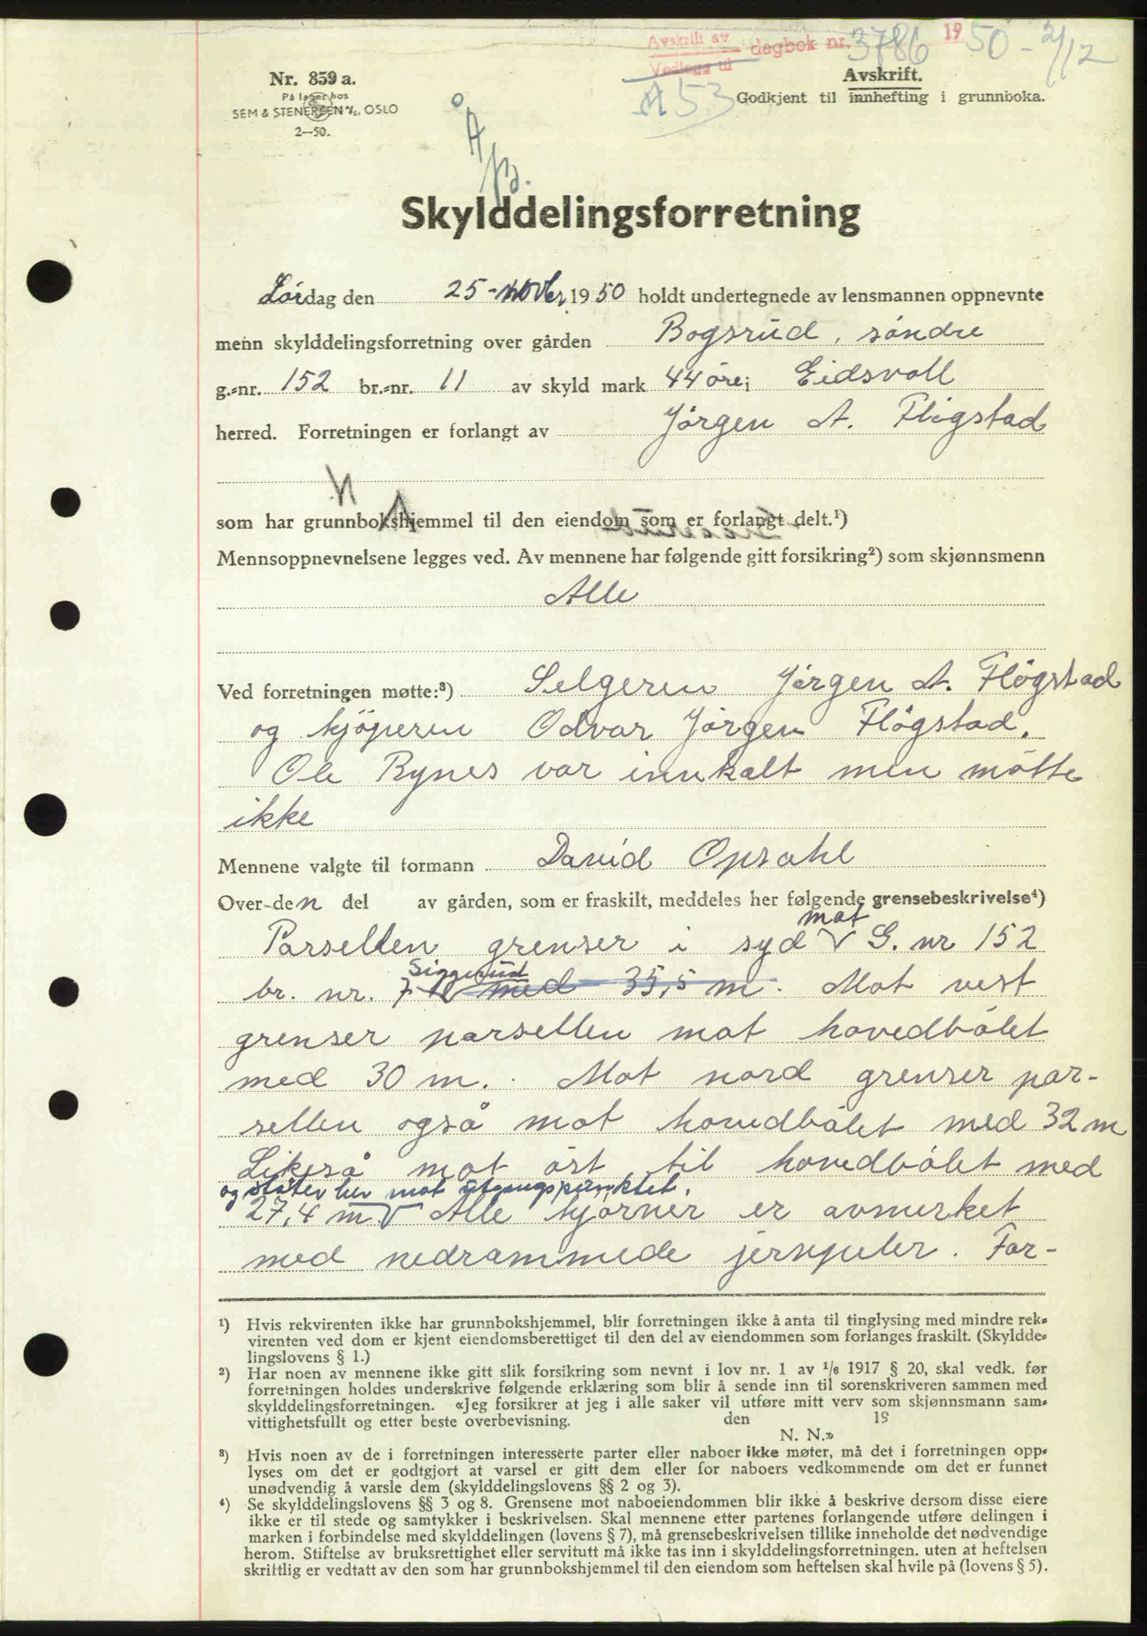 Avskrift av
Vedlegg til
dagbok nr. 3786 1950 - 2/12
A 53
Nr. 859 a.
På lager hos
SEM & STENERSEN A/S, OSLO
2—50.
Avskrift.
Godkjent til innhefting i grunnboka.
Skylddelingsforretning
Lørdag den 25-novbr. 1950 holdt undertegnede av lensmannen oppnevnte
menn skylddelingsforretning over gården Bogsrud, søndre
g.-nr. 152 br.-nr. 11 av skyld mark 44 øre i Eidsvoll
herred. Forretningen er forlangt av Jørgen A. Fløgstad
som har grunnbokshjemmel til den eiendom som er forlangt delt.¹)
Mennsoppnevnelsene legges ved. Av mennene har følgende gitt forsikring²) som skjønnsmenn
Alle
Ved forretningen møtte:³) Selgeren Jørgen A. Fløgstad
og kjøperen Odvar Jørgen Fløgstad.
Ole Rynes var innkalt men møtte
ikke
Mennene valgte til formann David Opsahl
Over den del av gården, som er fraskilt, meddeles her følgende grensebeskrivelse⁴)
mot
Parsellen grenser i syd V G. nr 152
Siggerud
br. nr. 7 V med 35,5 m. Mot vest
grenser parsellen mot hovedbølet
med 30 m. Mot nord grenser par-
sellen også mot hovedbølet med 32 m
Likeså mot øst til hovedbølet med
og støter her mot utgangspunktet.
27,4 m. V Alle hjørner er avmerket
med nedrammede jernpeler. For-
¹) Hvis rekvirenten ikke har grunnbokshjemmel, blir forretningen ikke å anta til tinglysing med mindre rek-
virenten ved dom er kjent eiendomsberettiget til den del av eiendommen som forlanges fraskilt. (Skyldde-
lingslovens § 1.)
²) Har noen av mennene ikke gitt slik forsikring som nevnt i lov nr. 1 av 1/6 1917 § 20, skal vedk. før
forretningen holdes underskrive følgende erklæring som blir å sende inn til sorenskriveren sammen med
skylddelingsforretningen. «Jeg forsikrer at jeg i alle saker vil utføre mitt verv som skjønnsmann sam-
vittighetsfullt og etter beste overbevisning. den 19
N. N.»
³) Hvis noen av de i forretningen interesserte parter eller naboer ikke møter, må det i forretningen opp-
lyses om det er godtgjort at varsel er gitt dem eller for naboers vedkommende om det er funnet
unødvendig å varsle dem (skylddelingslovens §§ 2 og 3).
⁴) Se skylddelingslovens §§ 3 og 8. Grensene mot naboeiendommen blir ikke å beskrive dersom disse eiere
ikke er til stede og samtykker i beskrivelsen. Skal mennene etter partenes forlangende utføre delingen i
marken i forbindelse med skylddelingen (lovens § 7), må grensebeskrivelsen tillike inneholde det nødvendige
herom. Stiftelse av bruksrettighet eller servitutt må ikke tas inn i skylddelingsforretningen. uten at heftelsen
skriftlig er vedtatt av den som har grunnbokshjemmel til den eiendom som heftelsen skal hvile på (lovens § 5).